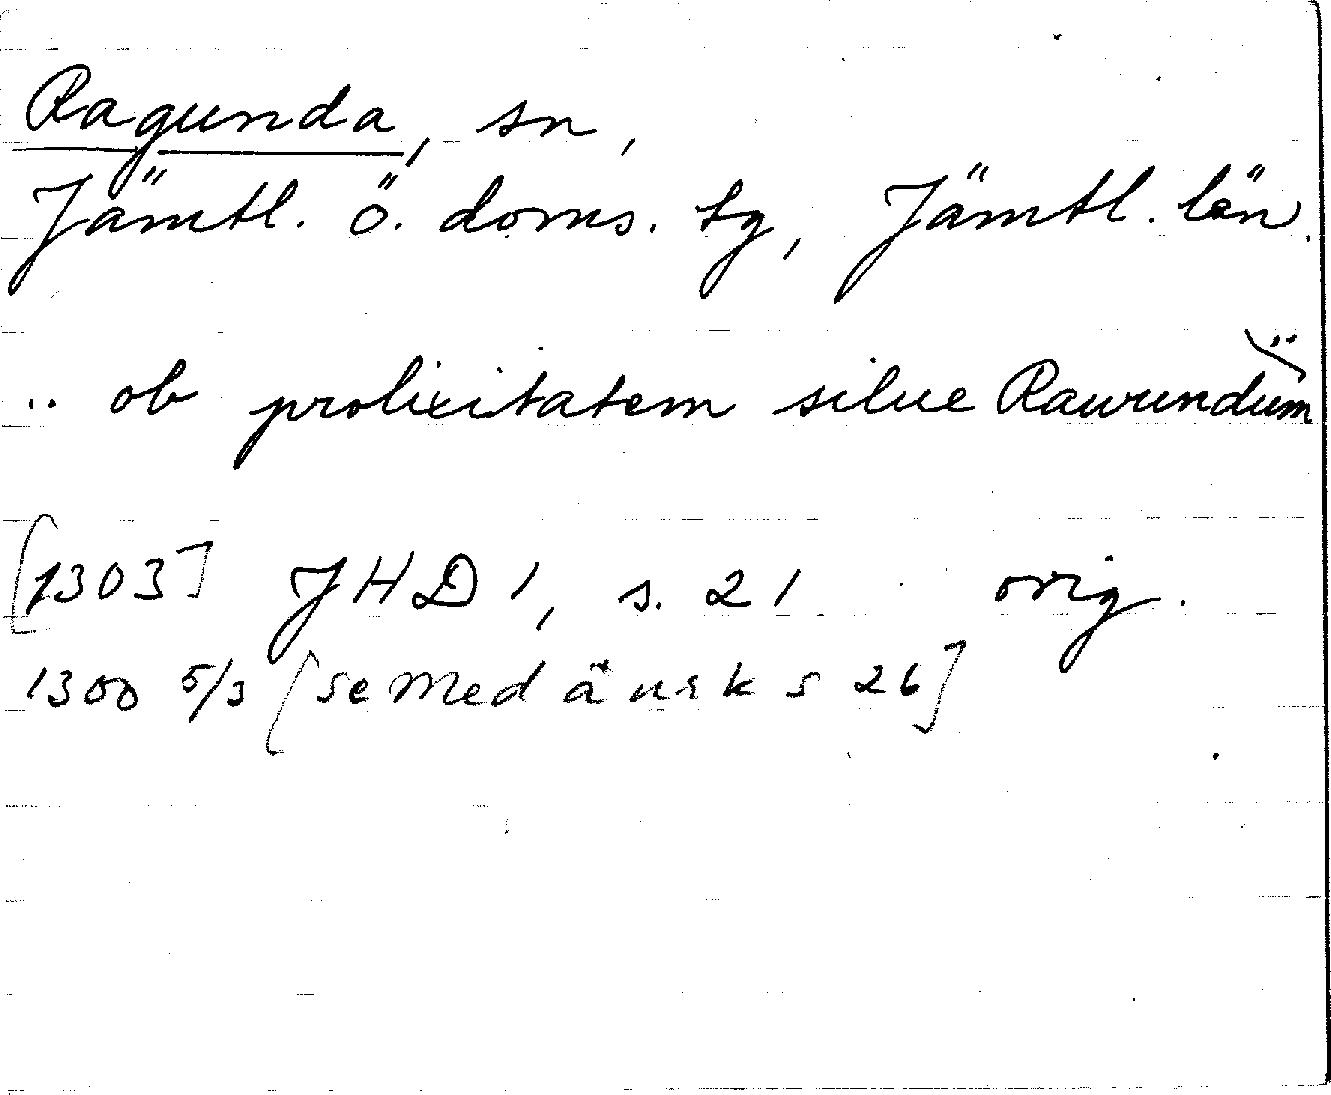 Ragunda, sn,
Jämtl. ö. doms. tg, Jämtl. län.
.. ob prolixitatem silue Rawundum ..
[1303] JHD 1, s. 21 orig.
1300 5/3 [se Med änsk s 26]